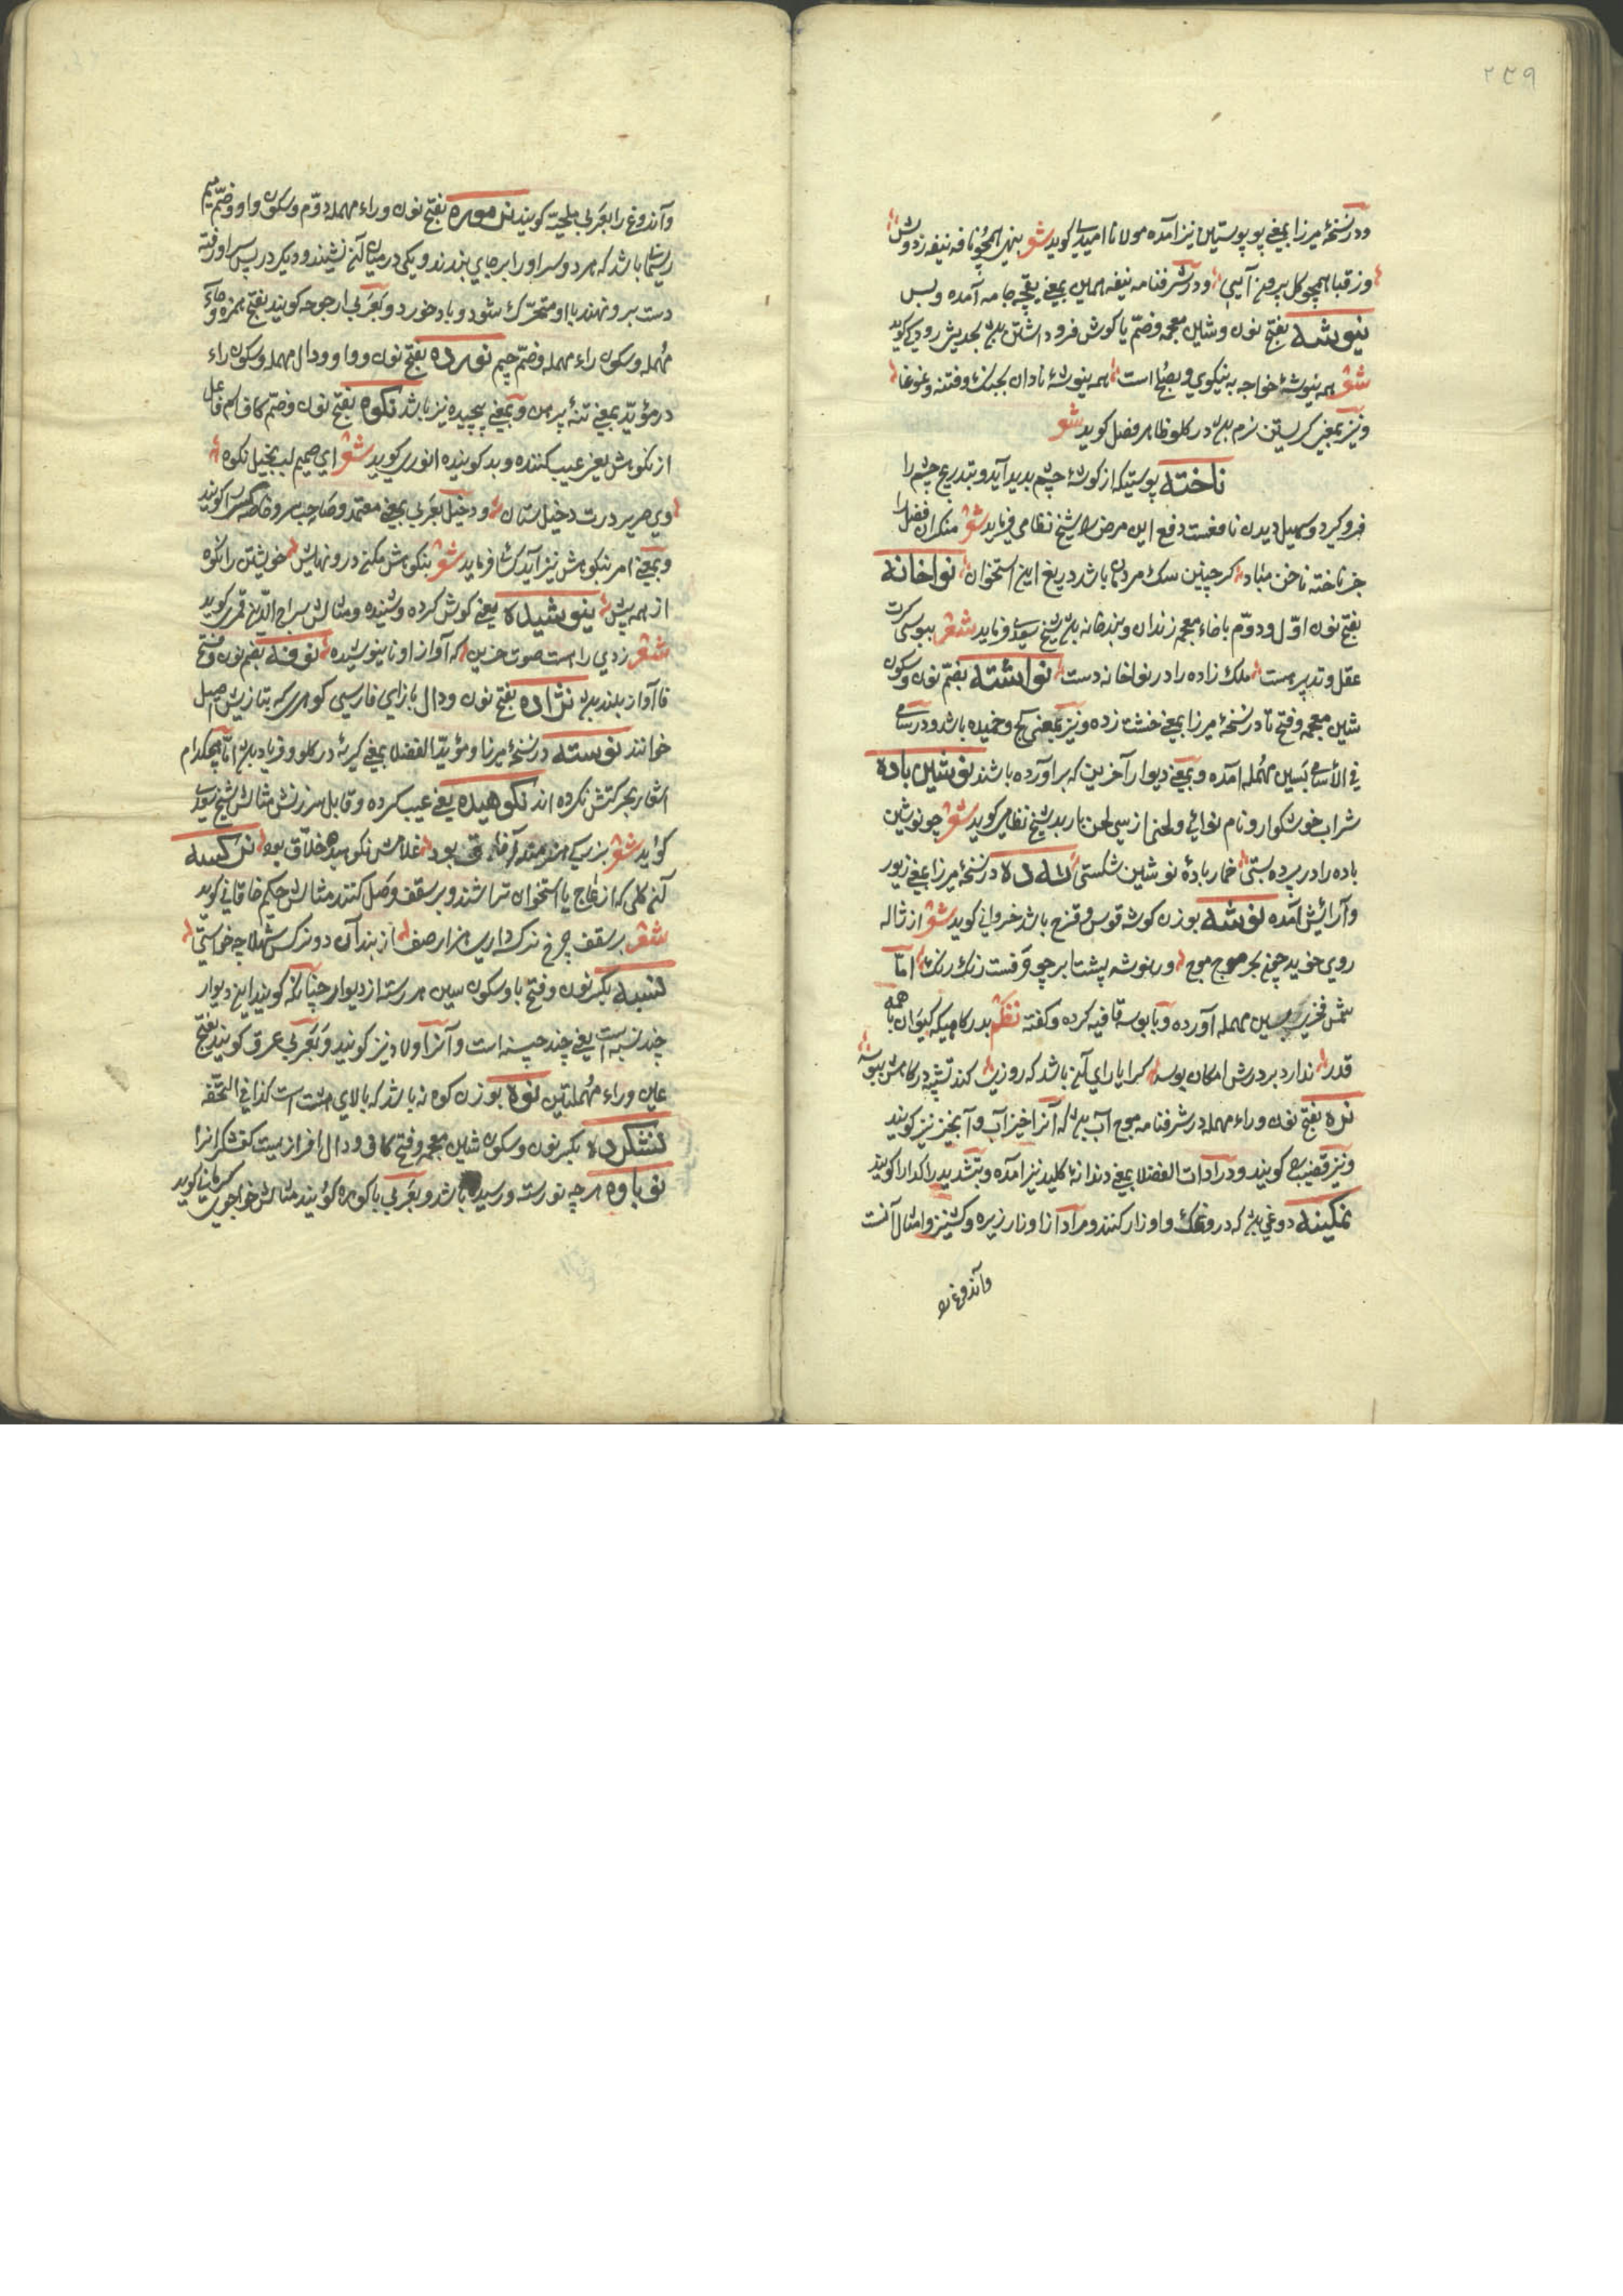 ٢٣٩
ودر نسخهٔ میرزا بمعنی پوپوستین نیز آمده مولانا امیدی کوید شعر بنهی همچو نافه نیفه زدوش
وز قبا همچو کل برون آیی ودر شرفنامه نیفه همین بمعنی نیفچه جامه آمده وبس
نیوشه بفتح نون وشین معجمه وضم یا کوش فرو داشتن باشد بحدیش رودکی کوید
شعر همه نیوشهٔ خواجه به نیکوی وبصلح است همه نیوشهٔ نادان بجنک وفتنه وغوغا
ونیز بمعنی کریستن نرم باشد در کلو ظاهر فضل کوید شعر
ناخنه پوستیکه از کوشهٔ چشم پدید آید وبتدریج چشم را
فرو کیرد وسهیل دیدن نافعست دفع این مرض را شیخ نظامی فرماید شعر منکران فضل را
جز ناخنه ناخن مباد کر چنین سک مردمان باشد دریغ این استخوان نواخانه
بفتح نون اول ودوم باخاء معجمه زندان وبندخانه باشد شیخ سعدی فرماید شعر ببوسی کرت
عقل وتدبیر هست ملک زاده را در نواخانه دست نواشته بضم نون وسکون
شین معجمه وفتح تا در نسخهٔ میرزا بمعنی خشت زده ونیز بمعنی کج وخمیده باشد ودر سامی
فی الأسامی بسین مهمله آمده وبمعنی دیوار آخرین که برآورده باشند نوشین باده
شراب خوشکوار ونام نوائی ولحنی از سی لحن باربد شیخ نظامی کوید شعر چو نوشین
باده را در پرده بستی خمار بادهٔ نوشین شکستی در نسخهٔ میرزا بمعنی زیور
وآرایش آمده نوشه بوزن کوشه قوس وقزح باشد خسروانی کوید شعر از ژاله
روی خوید چون بحر موج موج وز نوشه پشت ابر چو قوست رنک رنک امّا
شمس فخری بسین مهمله آورده وبا بوسه قافیه کرده وکفته نظم بدر کاهیکه کیوان با همه
قدر ندارد بر درش امکان بوسه کرا یارای آن باشد که روزی کند تشبیه در کاهش بنوسه
نره بفتح نون وراء مهمله در شرفنامه موج آب باشد که آنرا خیزاب وآبخیز نیز کویند
ونیز قضیب کویند ودر ادات الفضلا بمعنی دندانهٔ کلید نیز آمده وبتشدید را کدا را کویند
نمکینه دوغی باشد که درو نمک واوزار کنند ومراد از اوزار زیره وکشنیز وامثال آنست
وآندوغ را
وآندوغ را بعربی ملحیّه کویند نرموره بفتح نون وراء مهملهٔ دوّم وسکون واو وضم میم
ریسمانی باشد که هر دو سر او را بر جایی بندند ویکی در میان آن نشیند ودیکر در پس او رفته
دست برو نهند با او متحرک شود وباد خورد وبعربی ارجوحه کویند بفتح همزه وحاء
مهمله وسکون راء مهمله وضم جیم نورده بفتح نون وواو ودال مهمله وسکون راء
در مؤید بمعنی تنهٔ پیرهن وبمعنی پیچیده نیز باشد نکوه بفتح نون وضم کاف اسم فاعل
از نکوهش یعنی عیب کننده وبد کوینده انوری کوید شعر ای ضمیر لبت بخیل نکوه
وی صریر درت دخیل ستان ودخیل بعربی بمعنی معتمد وصاحب سر وخاصه کس را کویند
وبمعنی امر بنکوهش نیز آید کسائی فرماید شعر بنکوهش مکن درو نهایش خویشتن را نکوه
از همه پیش نیوشیده یعنی کوش کرده وشنیده ومثالش سراج الدین قمری کوید
شعر زدی راست صوت حزین که آواز او نانیوشیده نوفه بضم نون وفتح
فا آواز بلند باشد نژاده بفتح نون ودال با زای فارسی کوهری که بتازیش اصیل
خوانند نوسته در نسخهٔ میرزا ومؤید الفضلا بمعنی کریهٔ در کلو وفریاد باشد امّا هیچکدام
اشعار بحرکتش نکرده اند نکوهیده یعنی عیب کرده وقابل سرزنش مثالش شیخ سعدی
کوید شعر بزرکی هنرمند آفاق بود غلامش نکوهیده اخلاق بود نرکسه
آن کلی که از عاج یا استخوان تراشند وبر سقف وصل کنند مثالش حکیم خاقانی کوید
شعر بر سقف چرخ نرکسه داری هزار صف از بند آن دو نرکس شهلا چه خواستی
نسبه بکسر نون وفتح با وسکون سین هر رسته از دیوار چنانکه کویند این دیوار
چند نسبه است یعنی چند چینه است وآنرا ولاد نیز کویند وبعربی عرق کویند بفتح
عین وراء مهملتین نوه بوزن کوه نه باشد که بالای هشت است کذا فی التحفه
نشکرده بکسر نون وسکون شین معجمه وفتح کاف ودال افزاریست کفشکرانرا
نوباوه هر چه نورسته ورسیده باشد وبعربی باکوره کویند مثالش خواجوی کرمانی کوید